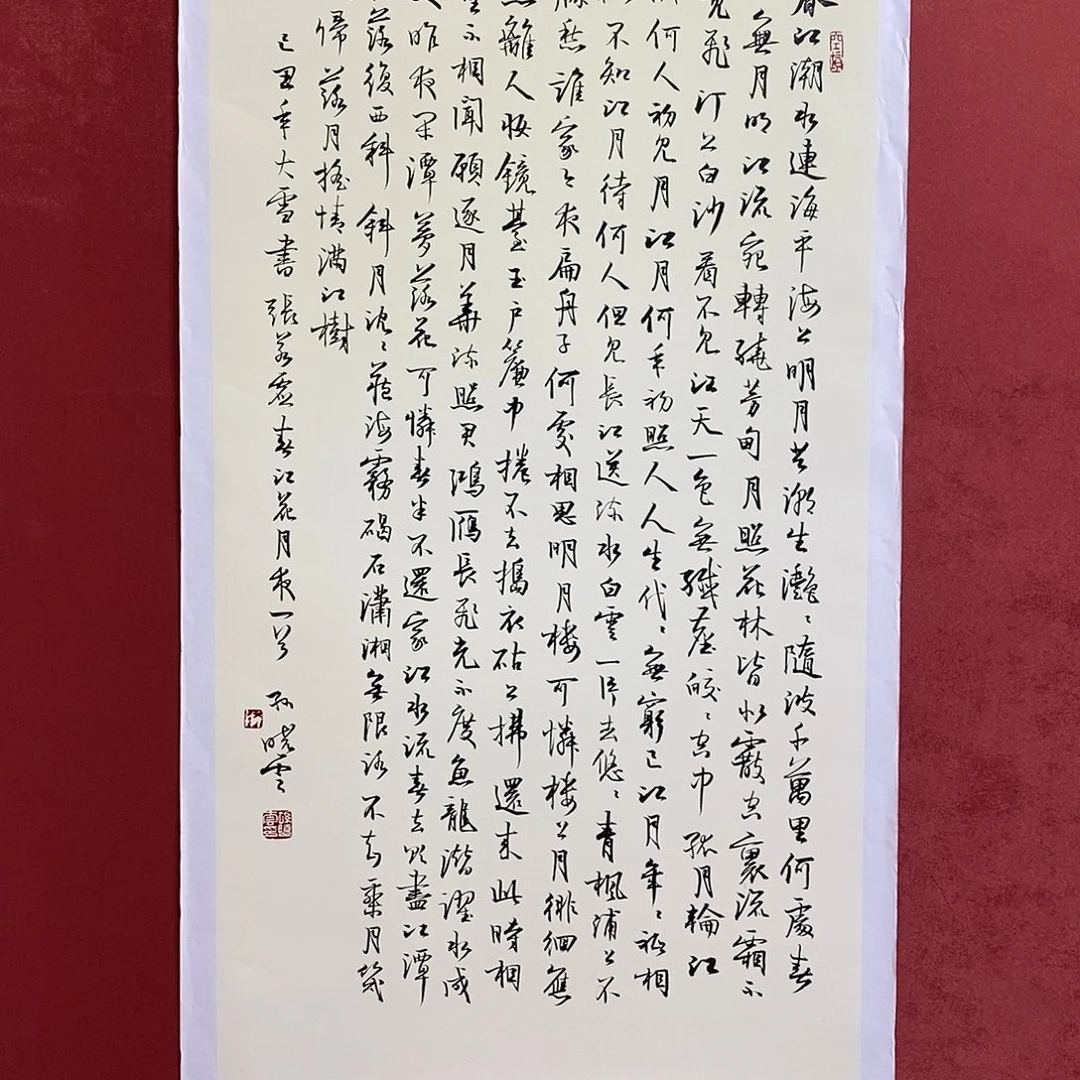 春江潮水連海平海上明月共潮生灧〻隨波千萬里何處春
無月明江流宛轉繞芳甸月照花林皆似霰空裏流霜不
飛汀上白沙看不見江天一色無纖塵皎〻空中孤月輪江
何人初見月江月何年初照人人生代〻無窮已江月年〻祗相
不知江月待何人但見長江送流水白雲一片去悠〻青楓浦上不
勝愁誰家今夜扁舟子何處相思明月楼可憐楼上月徘徊應
照離人妝鏡臺玉戶簾中捲不去搗衣砧上拂還來此時相
望不相聞願逐月華流照君鴻雁長飛光不度魚龍潛躍水成
文昨夜閑潭夢落花可憐春半不還家江水流春去欲盡江潭
落復西斜斜月沉〻藏海霧碣石瀟湘無限路不知乘月幾
歸落月搖情滿江樹
己丑年大雪書張若虛春江花月夜一首
孫曉雲